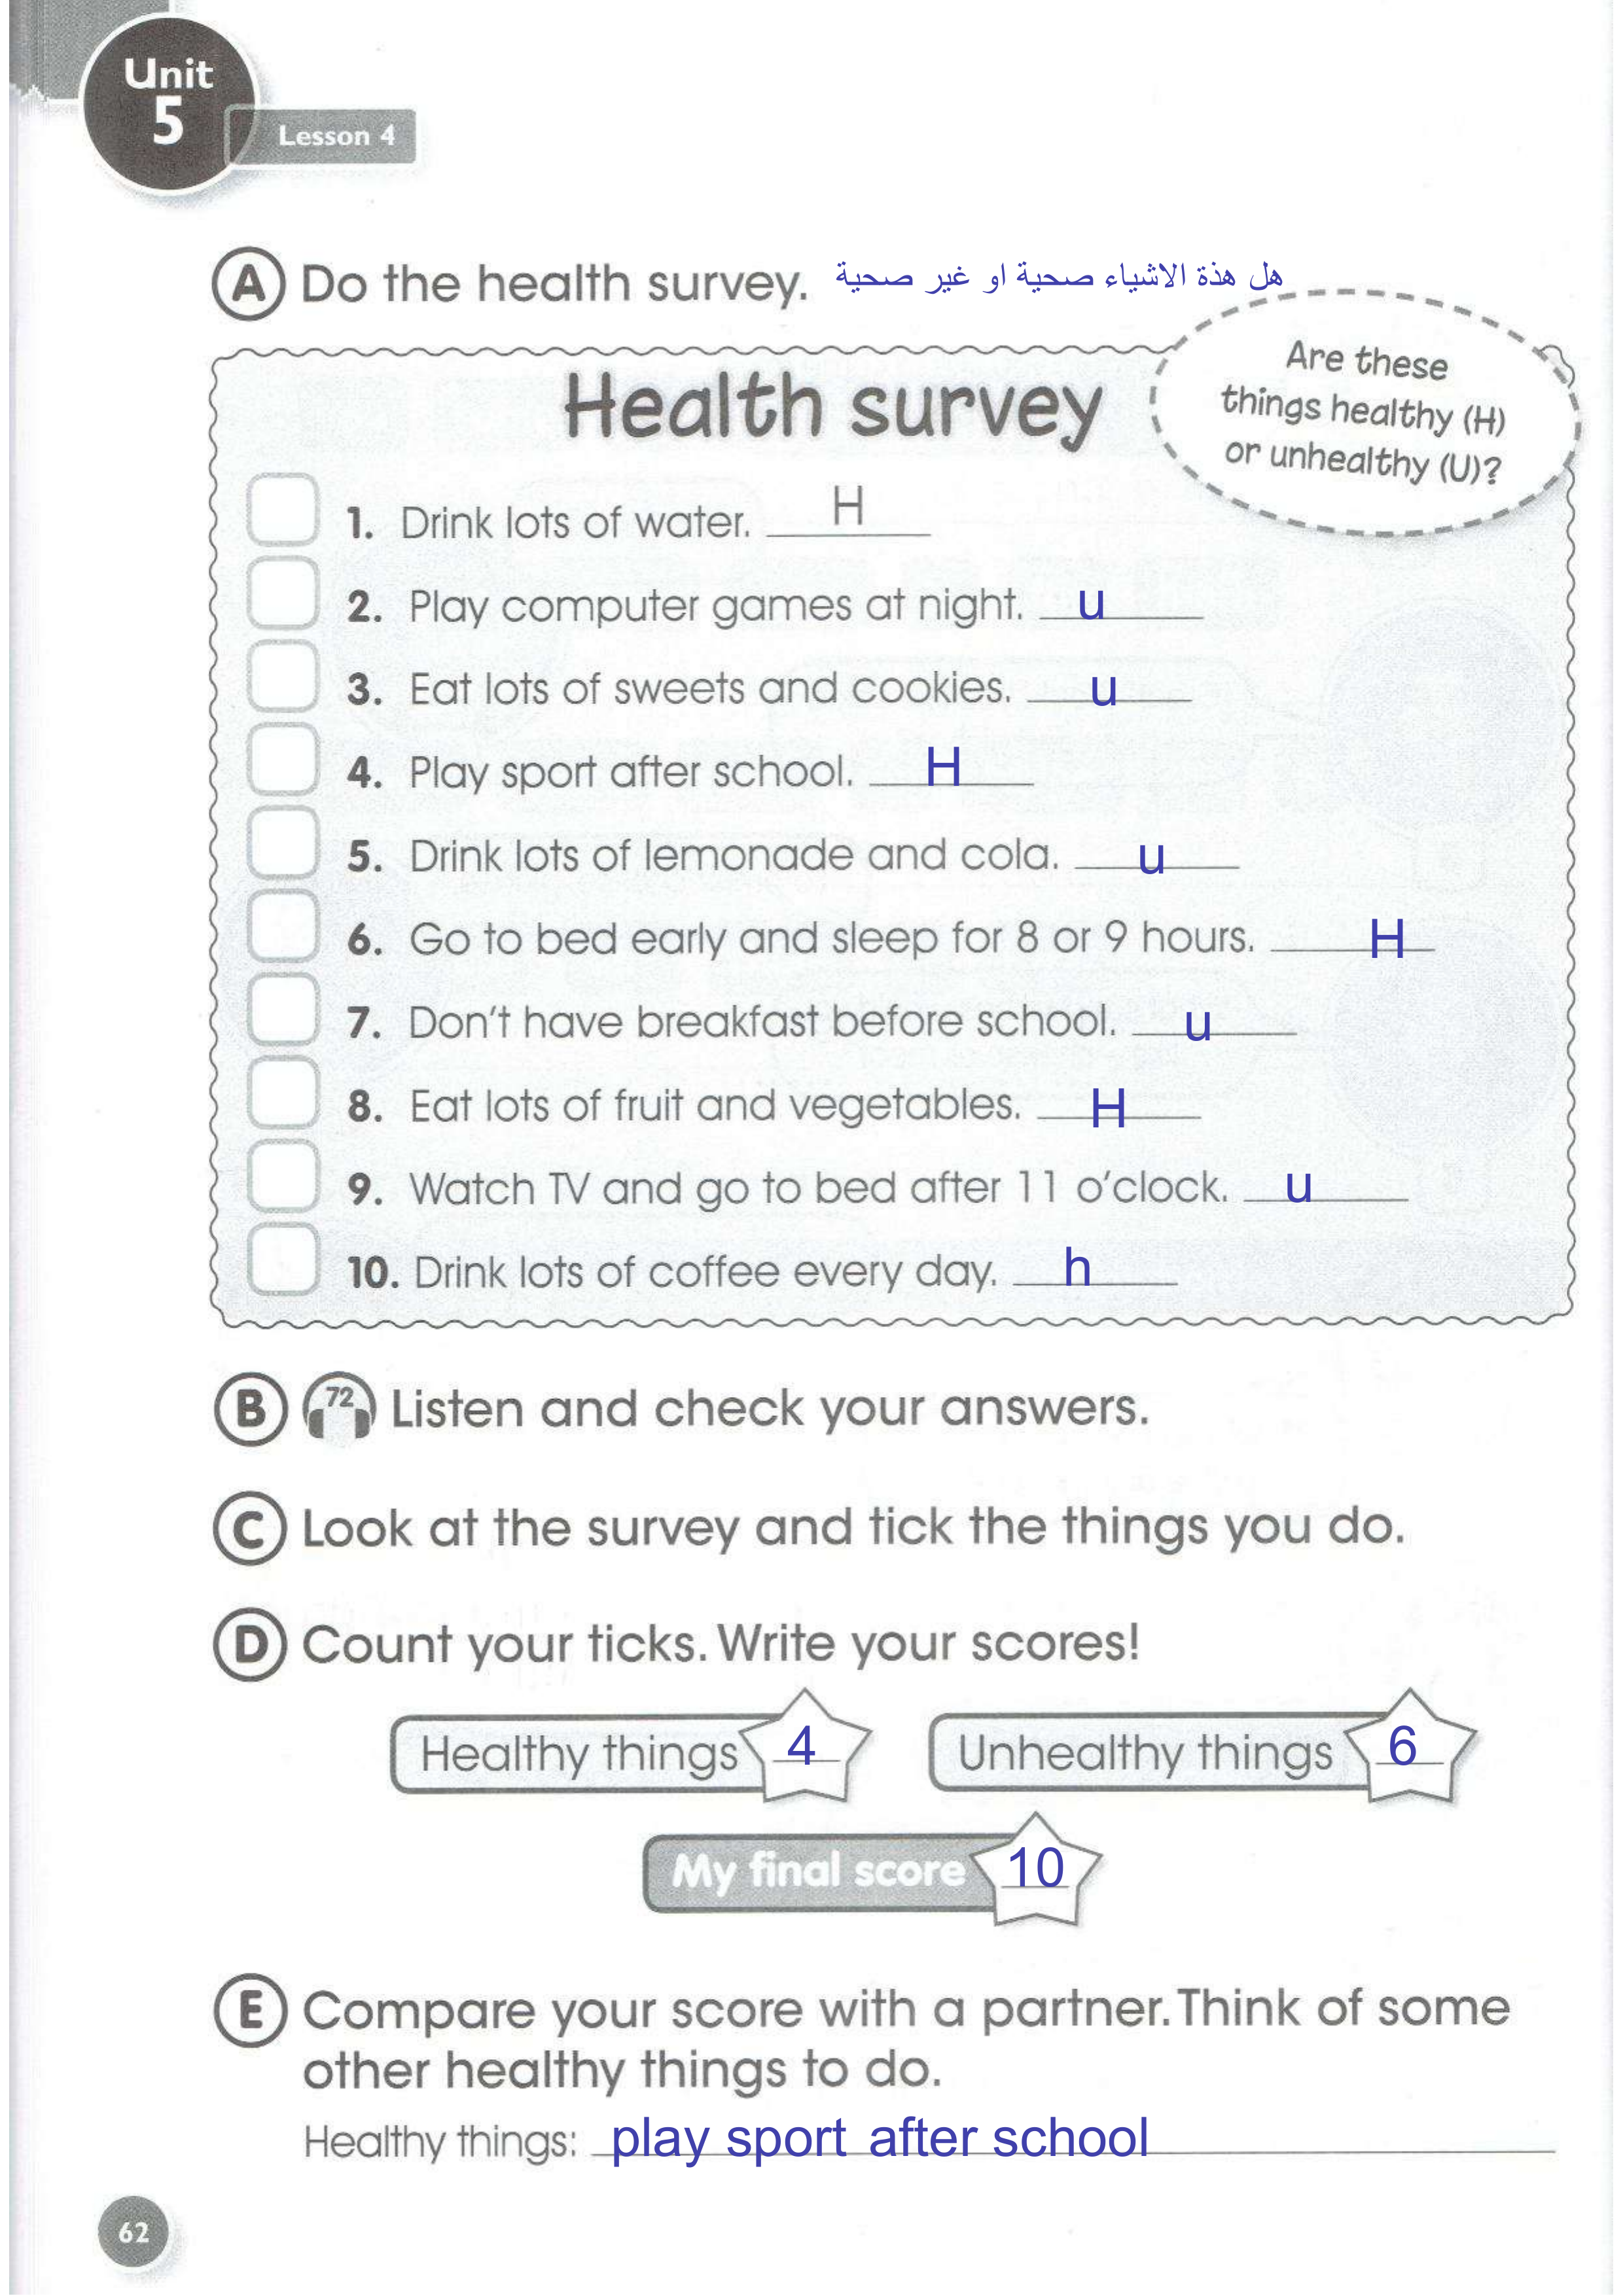 Unit
5
Lesson 4
A Do the health survey. هل هذة الاشياء صحية او غير صحية
Health survey
Are these
things healthy (H)
or unhealthy (U)?
1. Drink lots of water. H
2. Play computer games at night. u
3. Eat lots of sweets and cookies. u
4. Play sport after school. H
5. Drink lots of lemonade and cola. u
6. Go to bed early and sleep for 8 or 9 hours. H
7. Don't have breakfast before school. u
8. Eat lots of fruit and vegetables. H
9. Watch TV and go to bed after 11 o'clock. u
10. Drink lots of coffee every day. h
B 72 Listen and check your answers.
C Look at the survey and tick the things you do.
D Count your ticks. Write your scores!
Healthy things 4 Unhealthy things 6
My final score 10
E Compare your score with a partner. Think of some
other healthy things to do.
Healthy things: play sport after school
62